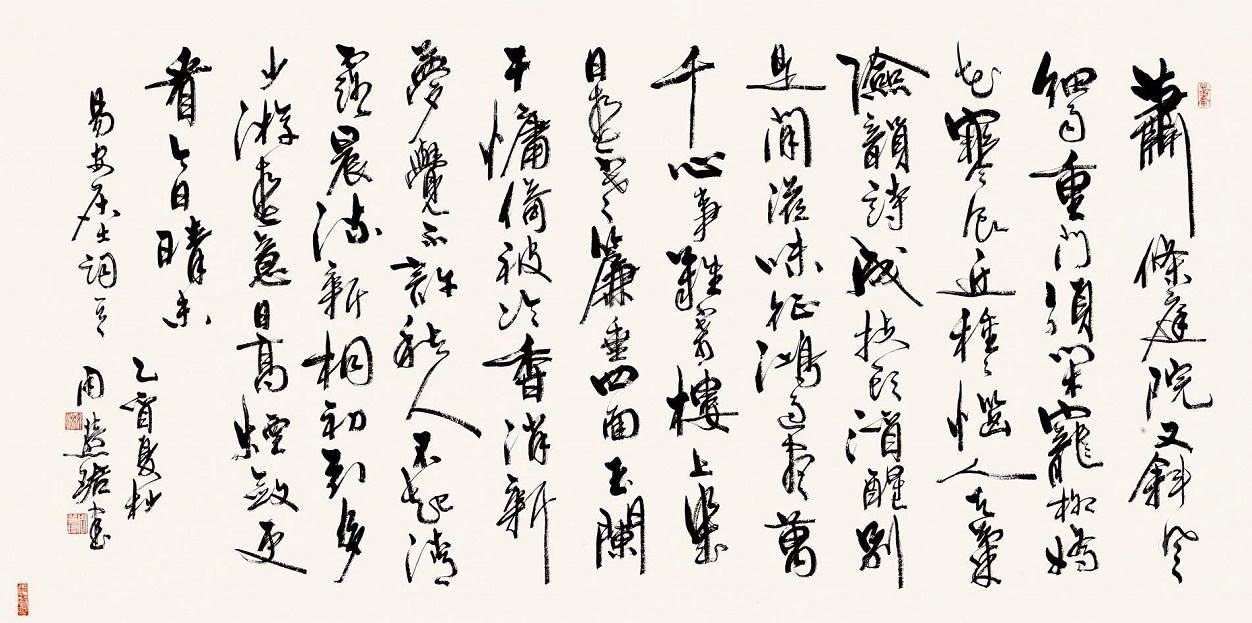 蕭條庭院又斜風
細雨重門須閉寵柳嬌
花寒食近種種惱人天氣
險韻詩成扶頭酒醒別
是閒滋味征鴻過盡萬
千心事難寄樓上幾
日春寒簾垂四面玉闌
干慵倚被冷香消新
夢覺不許愁人不起清
露晨流新桐初引多
少游春意日高煙斂更
看今日晴未
乙酉夏杪
易安居士詞 周慧珺書